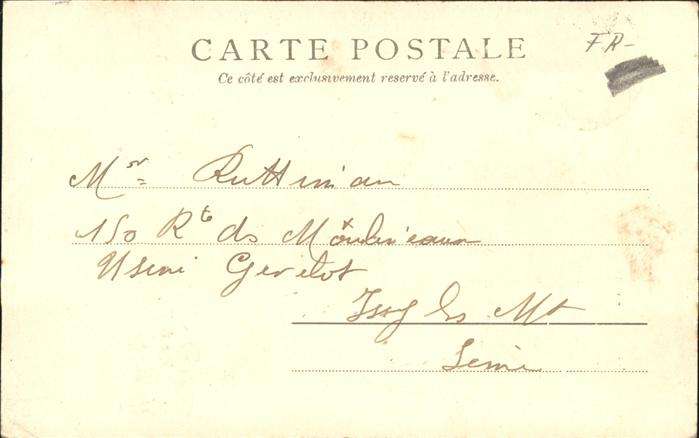 CARTE POSTALE
FR-
Ce côté est exclusivement reservé à l'adresse.
Mr Ruttiman
150 Rte ds Moulineaux
Usine Gevelot
Issy les Mt
Seine